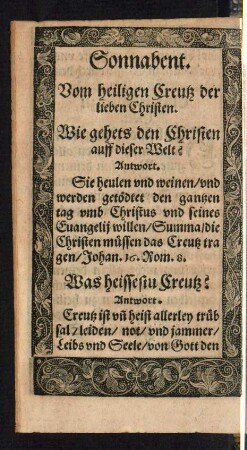 Sonnabent.
Vom heiligen Creutz der
lieben Christen.
Wie gehets den Christen
auff dieser Welt?
Antwort.
Sie heulen vnd weinen/vnd
werden getödtet den gantzen
tag vmb Christus vnd seines
Euangelij willen/Summa/die
Christen müssen das Creutz tra
gen/Johan. 16. Rom. 8.
Was heissestu Creutz?
Antwort.
Creutz ist vñ heist allerley trüb
sal/leiden/not/vnd jammer/
Leibs vnd Seele/von Gott den